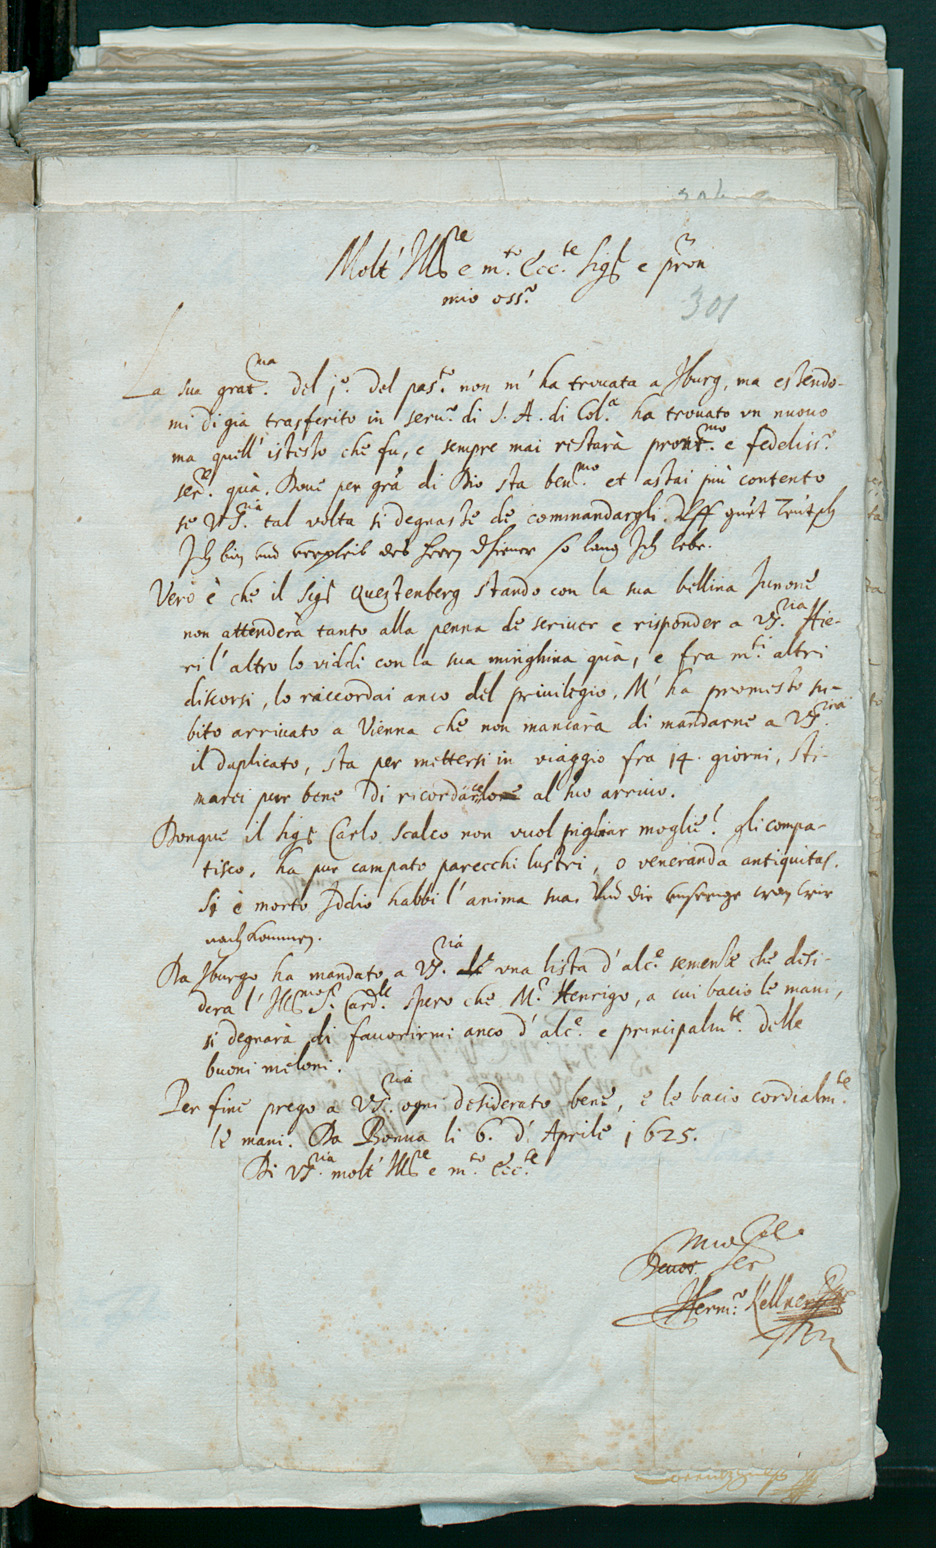 Molt' Ills.re e m.to Ecc.te Sig.r e pron
mio oss.o
301
La sua grat.ma del j.o del pas.o non m' ha trouata a Jburg, ma essendo-
mi di già trasferito in seru.o di S. A. di Col.a ha trouato vn nuouo
ma quell' istesso che fu, e sempre mai restarà pront.mo e fedeliss.o
ser.re quà. Doue per grã di Dio sta ben.mo et assai più contento
se VS.ria tal volta si degnasse de commandargli. Uff guet Teutsch
Ich bin und verpleib des Herrn Diener so lang Ich lebe.
Vero è che il Sig.r Questenberg stando con la sua bellina Junone
non attenderà tanto alla penna de scriuer e risponder a VS.ria Hie-
ri l' altro lo viddi con la sua minghina quà, e fra m.ti altri
discorsi, lo raccordai anco del priuilegio, M' ha promesso su-
bito arriuato a Vienna che non mancarà di mandarne a VS.ria
il duplicato, sta per mettersi in viaggio fra 14. giorni, sti-
marei pur bene di ricordar al suo arriuo.
Donque il Sig.r Carlo Scalco non vuol pigliar moglie! gli compa-
tisco, ha pur campato parecchi lustri, o veneranda antiquitas.
Si è morto Iddio habbi l' anima sua. Und die unserige wan wir
nach kommen.
Da Jburgo ha mandato a VS.ria vna lista d' alc.e semenze che desi-
dera l' Ill.mo S.r Card.le spero che M.r Henrigo, a cui bacio le mani,
si degnarà di fauorirmi anco d' alc.e e principalm.te delle
buoni meloni.
Per fine prego a VS.ria ogni desiderato bene, e le bacio cordialm.te
le mani. Da Bonna li 6. d' Aprile j625.
Di VS.ria molt' Ills.re e m.to Ecc.te
Deuot. Ser
Herm.o Kellner